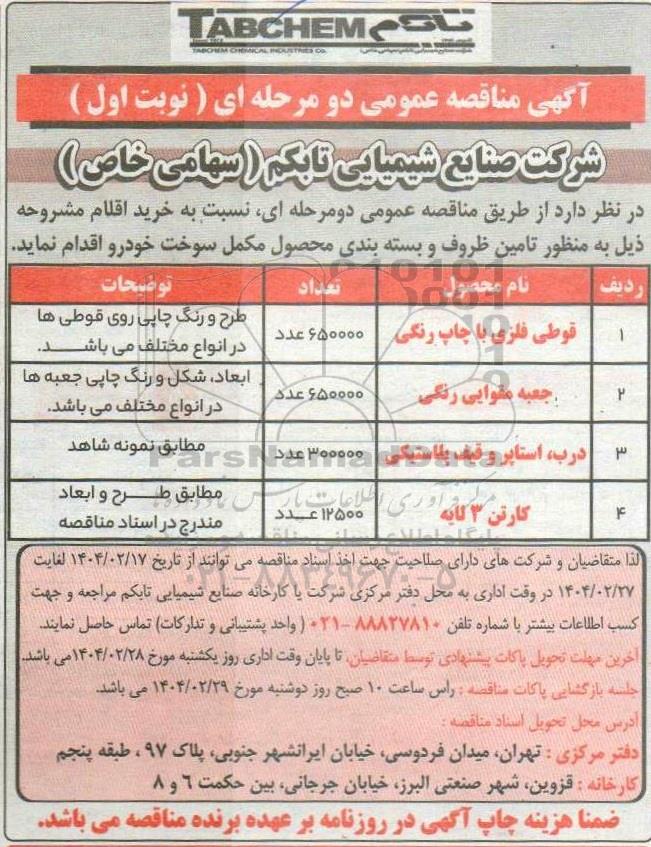 TABCHEM تابکم
TABCHEM CHEMICAL INDUSTRIES Co.
آگهی مناقصه عمومی دو مرحله ای ( نوبت اول )
شرکت صنایع شیمیایی تابکم ( سهامی خاص )
در نظر دارد از طریق مناقصه عمومی دومرحله ای، نسبت به خرید اقلام مشروحه
ذیل به منظور تامین ظروف و بسته بندی محصول مکمل سوخت خودرو اقدام نماید.
ردیف نام محصول تعداد توضیحات
۱ قوطی فلزی با چاپ رنگی ۶۵۰۰۰۰ عدد طرح و رنگ چاپی روی قوطی ها
در انواع مختلف می باشد.
۲ جعبه مقوایی رنگی ۶۵۰۰۰۰ عدد ابعاد، شکل و رنگ چاپی جعبه ها
در انواع مختلف می باشد.
۳ درب، استاپر و قیف پلاستیکی ۳۰۰۰۰۰ عدد مطابق نمونه شاهد
ParsNamadData
۴ کارتن ۳ لایه ۱۲۵۰۰ عدد مطابق طرح و ابعاد
مندرج در اسناد مناقصه
لذا متقاضیان و شرکت های دارای صلاحیت جهت اخذ اسناد مناقصه می توانند از تاریخ ۱۴۰۴/۰۲/۱۷ لغایت
۱۴۰۴/۰۲/۲۷ در وقت اداری به محل دفتر مرکزی شرکت یا کارخانه صنایع شیمیایی تابکم مراجعه و جهت
۰۲۱-۸۸۳۴۹۶۷۰-۵
کسب اطلاعات بیشتر با شماره تلفن ۸۸۸۲۷۸۱۰ -۰۲۱ ( واحد پشتیبانی و تدارکات) تماس حاصل نمایند.
آخرین مهلت تحویل پاکات پیشنهادی توسط متقاضیان، تا پایان وقت اداری روز یکشنبه مورخ ۱۴۰۴/۰۲/۲۸ می باشد.
جلسه بازگشایی پاکات مناقصه : راس ساعت ۱۰ صبح روز دوشنبه مورخ ۱۴۰۴/۰۲/۲۹ می باشد.
آدرس محل تحویل اسناد مناقصه :
دفتر مرکزی : تهران، میدان فردوسی، خیابان ایرانشهر جنوبی، پلاک ۹۷ ، طبقه پنجم
کارخانه : قزوین، شهر صنعتی البرز، خیابان جرجانی، بین حکمت ۶ و ۸
ضمنا هزینه چاپ آگهی در روزنامه بر عهده برنده مناقصه می باشد.